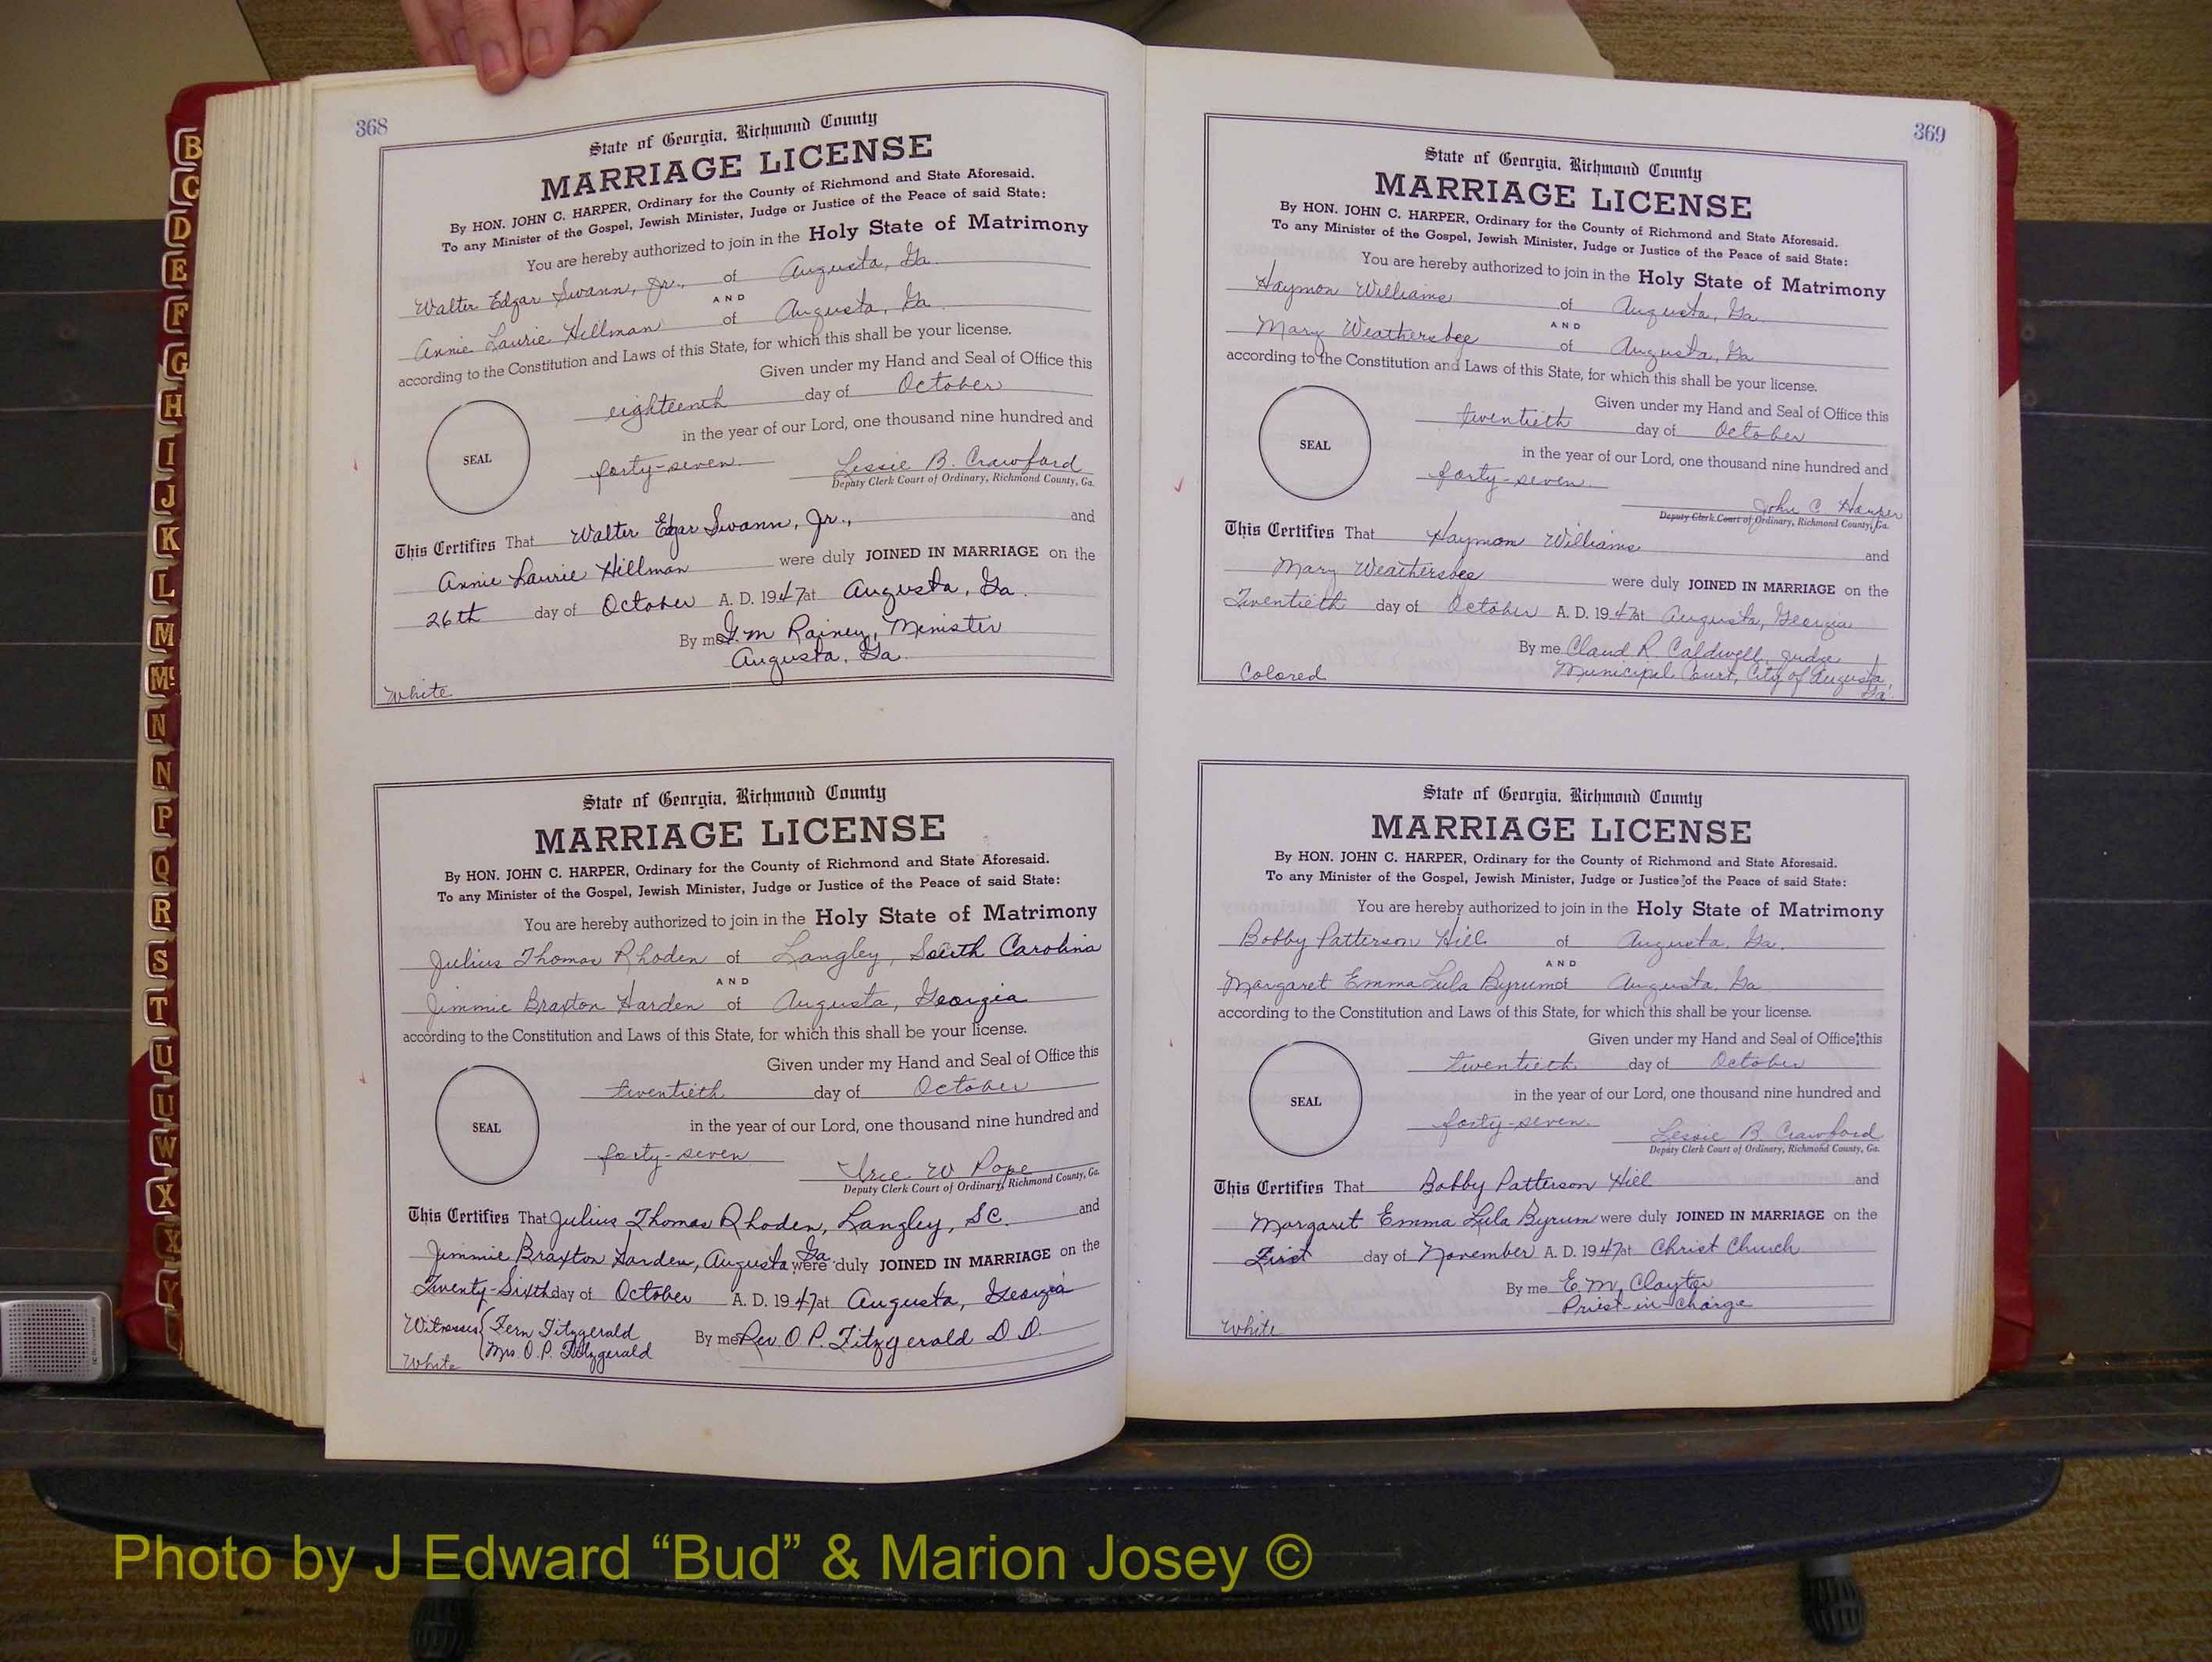 368
State of Georgia, Richmond County
MARRIAGE LICENSE
By HON. JOHN C. HARPER, Ordinary for the County of Richmond and State Aforesaid.
To any Minister of the Gospel, Jewish Minister, Judge or Justice of the Peace of said State:
You are hereby authorized to join in the Holy State of Matrimony
Walter Edgar Swann, Jr., of Augusta, Ga.
AND
Annie Laurie Hillman of Augusta, Ga.
according to the Constitution and Laws of this State, for which this shall be your license.
Given under my Hand and Seal of Office this
eighteenth day of October
in the year of our Lord, one thousand nine hundred and
SEAL
forty-seven. Lessie B. Crawford
Deputy Clerk Court of Ordinary, Richmond County, Ga.
This Certifies That Walter Edgar Swann, Jr., and
Annie Laurie Hillman were duly JOINED IN MARRIAGE on the
26th day of October A. D. 1947 at Augusta, Ga.
By me G. M Rainey, Minister
Augusta, Ga.
White
State of Georgia, Richmond County
MARRIAGE LICENSE
By HON. JOHN C. HARPER, Ordinary for the County of Richmond and State Aforesaid.
To any Minister of the Gospel, Jewish Minister, Judge or Justice of the Peace of said State:
You are hereby authorized to join in the Holy State of Matrimony
Julius Thomas Rhoden of Langley, South Carolina
AND
Jimmie Braxton Harden of Augusta, Georgia
according to the Constitution and Laws of this State, for which this shall be your license.
Given under my Hand and Seal of Office this
twentieth day of October
in the year of our Lord, one thousand nine hundred and
SEAL
forty-seven W. Pope
Deputy Clerk Court of Ordinary, Richmond County, Ga.
This Certifies That Julius Thomas Rhoden, Langley, SC. and
Jimmie Braxton Harden, Augusta Ga. were duly JOINED IN MARRIAGE on the
Twenty-Sixth day of October A. D. 1947 at Augusta, Georgia
Witnesses { Fern Fitzgerald By me Rev. O. P. Fitzgerald D. D.
Mrs. O. P. Fitzgerald
White
369
State of Georgia, Richmond County
MARRIAGE LICENSE
By HON. JOHN C. HARPER, Ordinary for the County of Richmond and State Aforesaid.
To any Minister of the Gospel, Jewish Minister, Judge or Justice of the Peace of said State:
You are hereby authorized to join in the Holy State of Matrimony
Haymon Williams of Augusta, Ga.
AND
Mary Weathersbee of Augusta, Ga
according to the Constitution and Laws of this State, for which this shall be your license.
Given under my Hand and Seal of Office this
twentieth day of October
in the year of our Lord, one thousand nine hundred and
SEAL
forty-seven. John C. Harper
Deputy Clerk Court of Ordinary, Richmond County, Ga.
This Certifies That Haymon Williams and
Mary Weathersbee were duly JOINED IN MARRIAGE on the
Twentieth day of October A. D. 1947 at Augusta, Georgia
By me Claud R. Caldwell, Judge
Municipal Court, City of Augusta,
Ga.
Colored
State of Georgia, Richmond County
MARRIAGE LICENSE
By HON. JOHN C. HARPER, Ordinary for the County of Richmond and State Aforesaid.
To any Minister of the Gospel, Jewish Minister, Judge or Justice of the Peace of said State:
You are hereby authorized to join in the Holy State of Matrimony
Bobby Patterson Hill of Augusta, Ga.
AND
Margaret Emma Lula Byrum of Augusta, Ga
according to the Constitution and Laws of this State, for which this shall be your license.
Given under my Hand and Seal of Office this
twentieth day of October
in the year of our Lord, one thousand nine hundred and
SEAL
forty-seven. Lessie B. Crawford
Deputy Clerk Court of Ordinary, Richmond County, Ga.
This Certifies That Bobby Patterson Hill and
Margaret Emma Lula Byrum were duly JOINED IN MARRIAGE on the
First day of November A. D. 1947 at Christ Church
By me E. M. Claytor
Priest-in-charge
White
B
C
D
E
F
G
H
I
J
K
L
M
Mc
N
N
P
Q
R
S
T
U
U
W
X
X
Y
Photo by J Edward “Bud” & Marion Josey ©